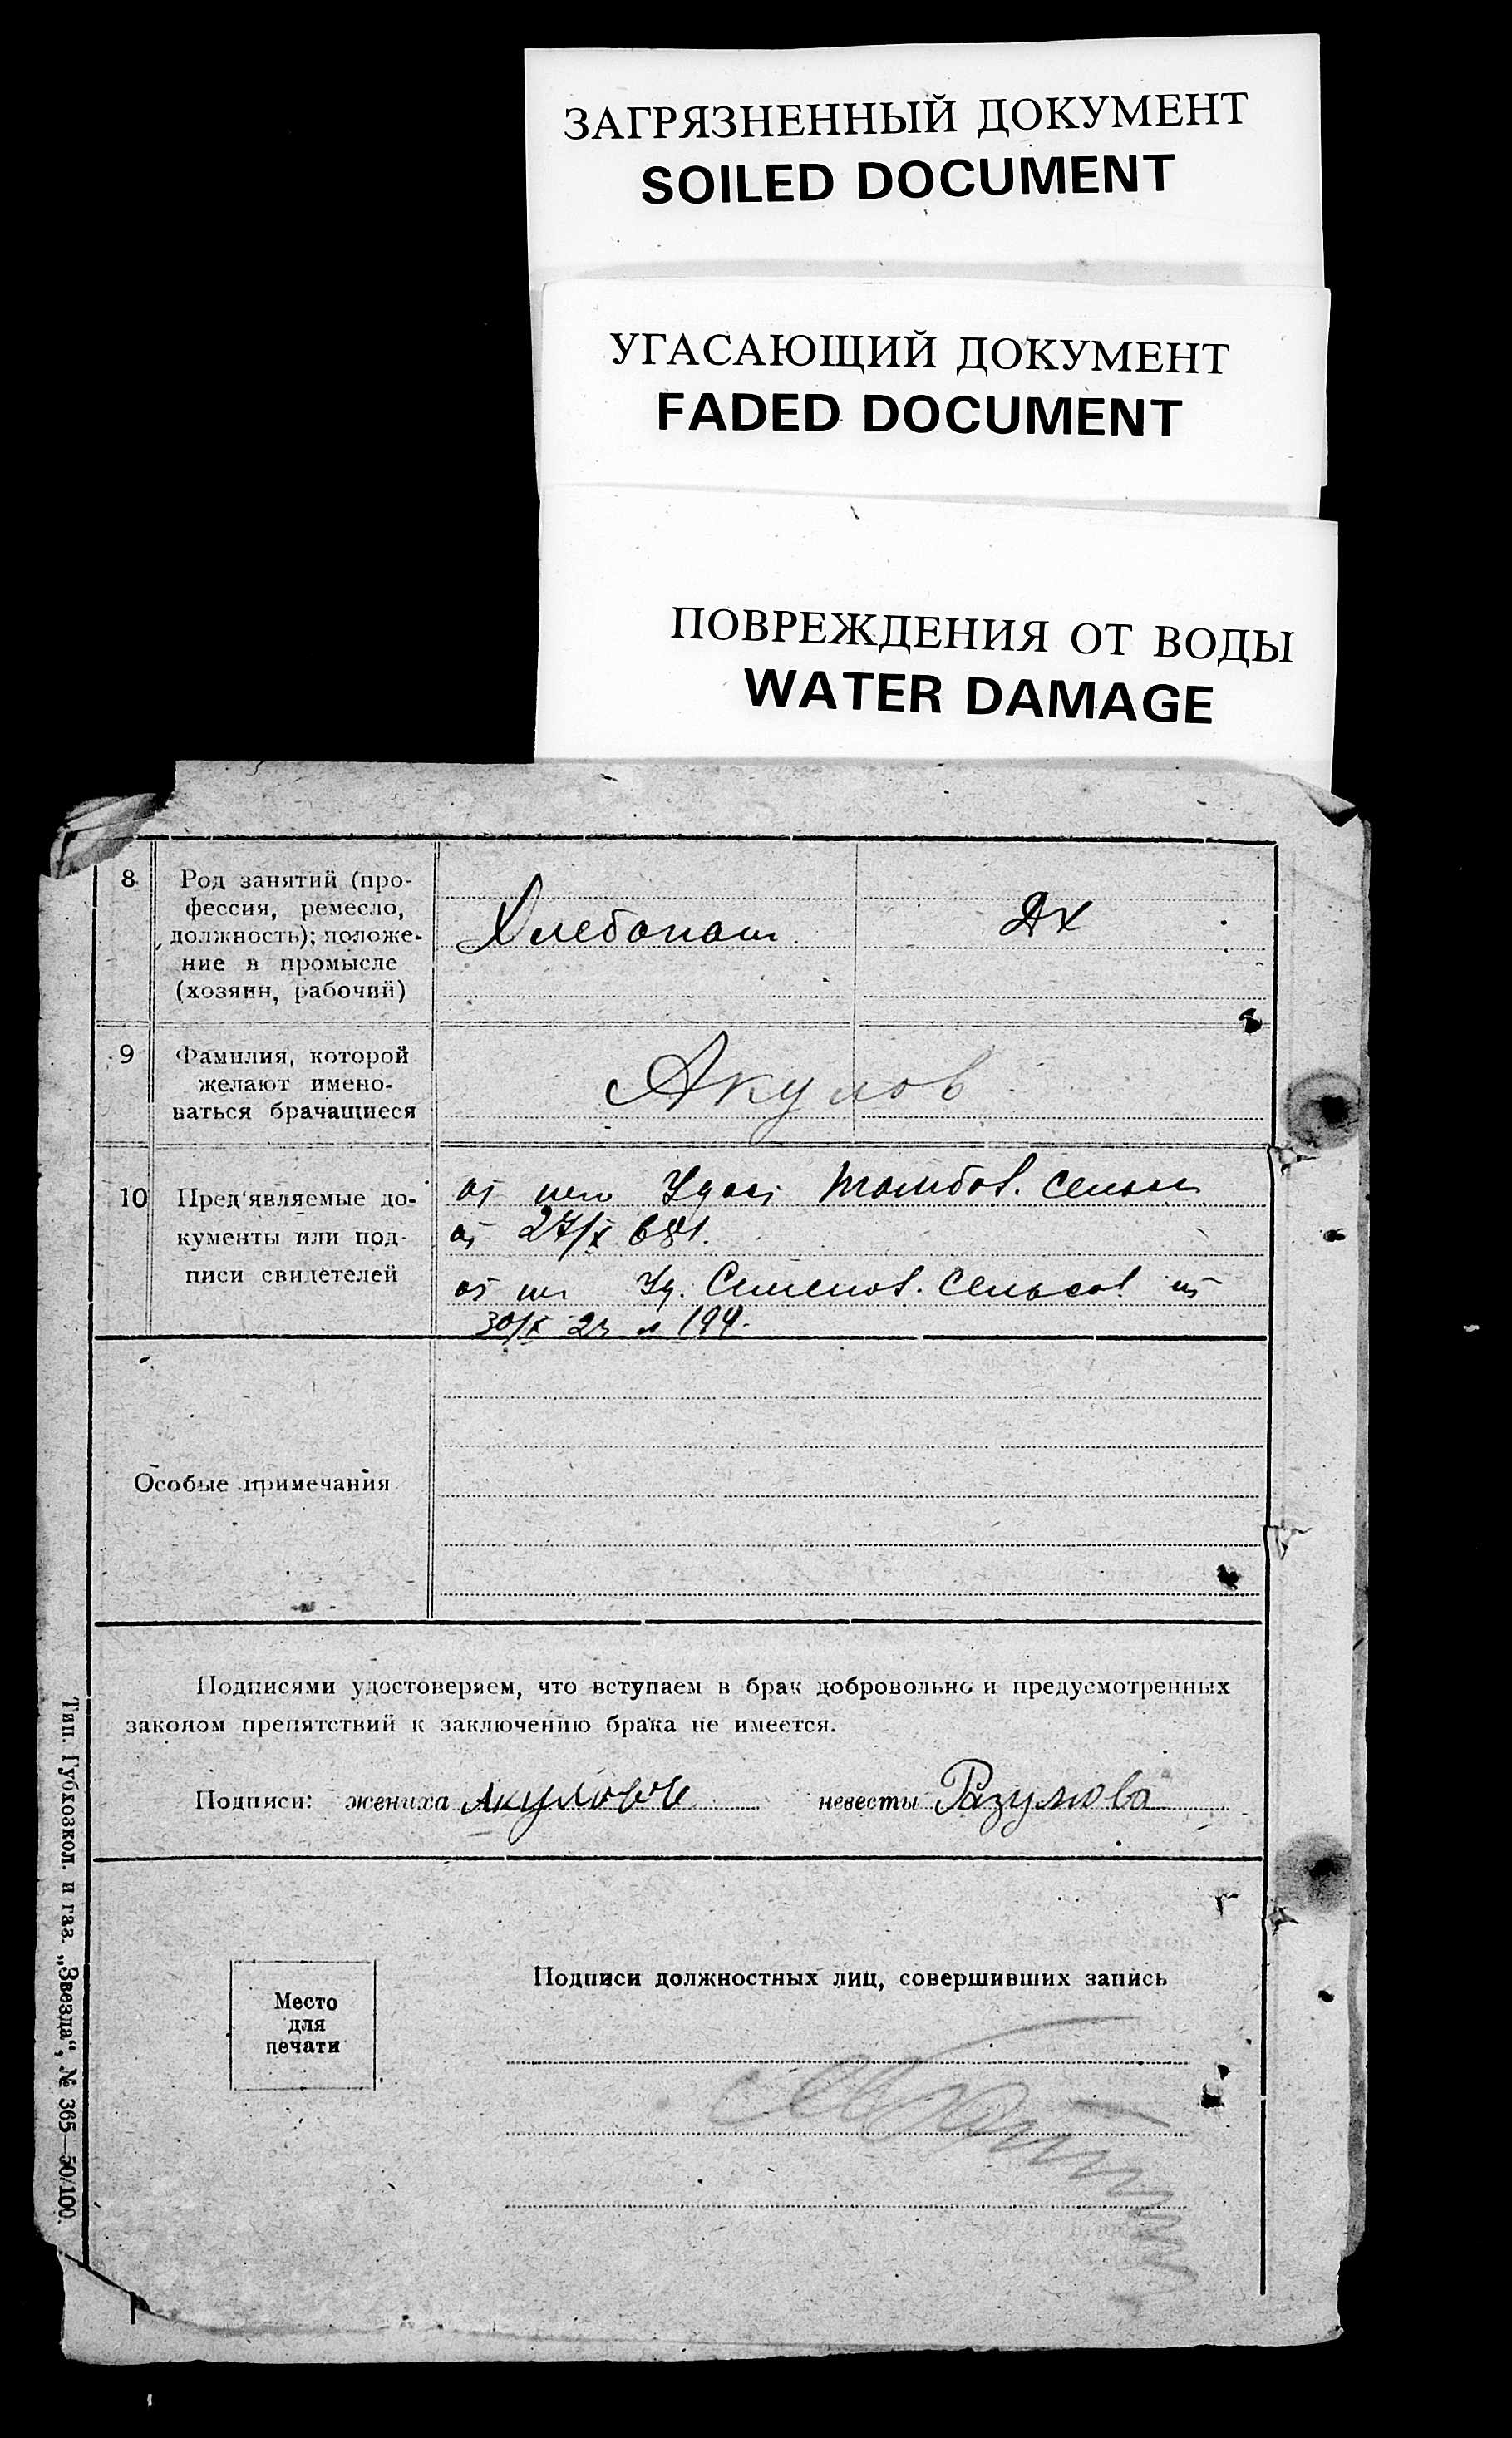 ЗАГРЯЗНЕННЫЙ ДОКУМЕНТ
SOILED DOCUMENT
УГАСАЮЩИЙ ДОКУМЕНТ
FADED DOCUMENT
ПОВРЕЖДЕНИЯ ОТ ВОДЫ
WATER DAMAGE
8
Род занятий (про-
фессия, ремесло,
должность); положе-
ние в промысле
(хозяин, рабочий)
Хлебопаш.
Дх
9
Фамилия, которой
желают имено-
ваться брачащиеся
Акулов
10
Пред'являемые до-
кументы или под-
писи свидетелей
от Удост Тамбов.
от 27/X 681.
от Уд. Семенов. Сельсов от
30/X 194.
Особые примечания
Подписями удостоверяем, что вступаем в брак добровольно и предусмотренных
законом препятствий к заключению брака не имеется.
Подписи: жениха Акулов невесты Разумова
Место
для
печати
Подписи должностных лиц, совершивших запись
Тип. Губхозкол. и газ. „Звезда", № 365—50/100.